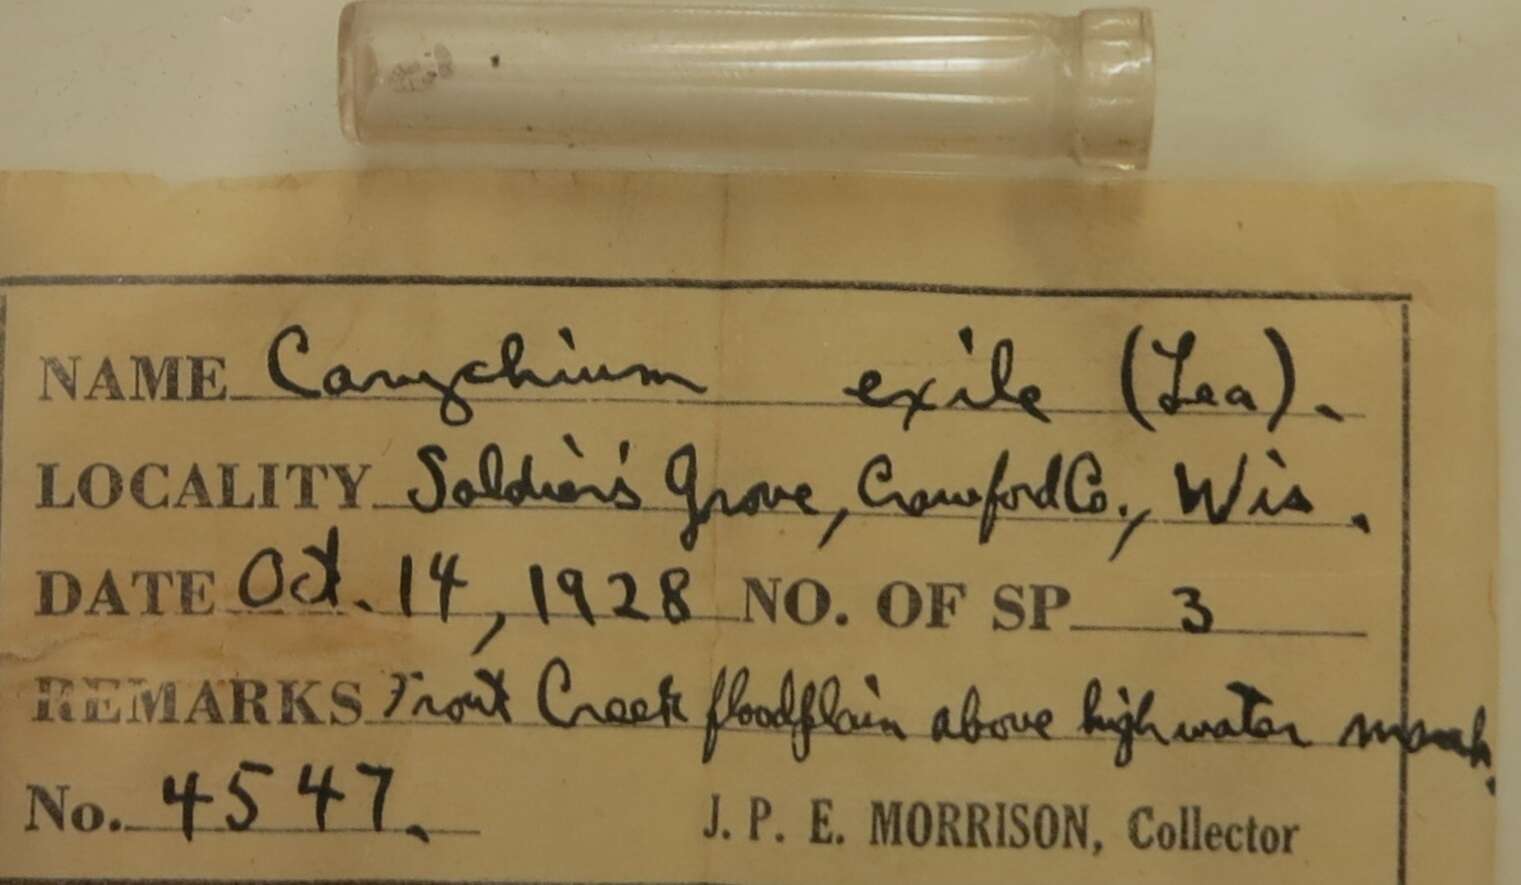 NAME Carychium exile (Lea).
LOCALITY Soldier's Grove, Crawford Co., Wis.
DATE Oct. 14, 1928 NO. OF SP 3
REMARKS Trout Creek floodplain above high water mark.
No. 4547. J. P. E. MORRISON, Collector